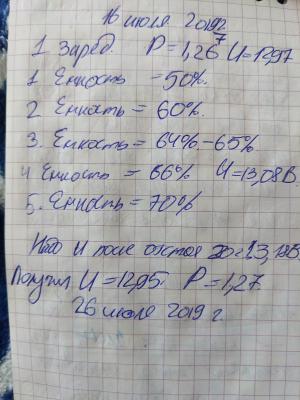 16 июля 2019г.
1 заряд. P=1,267 U=12,97
1 Емкость - 50%.
2 Емкость = 60%.
3. Емкость = 64% - 65%
4 Емкость = 66% U=13,08В
5. Емкость = 70%
и после отстоя 13,
Получил U=12,95 P=1,27
26 июля 2019 г.